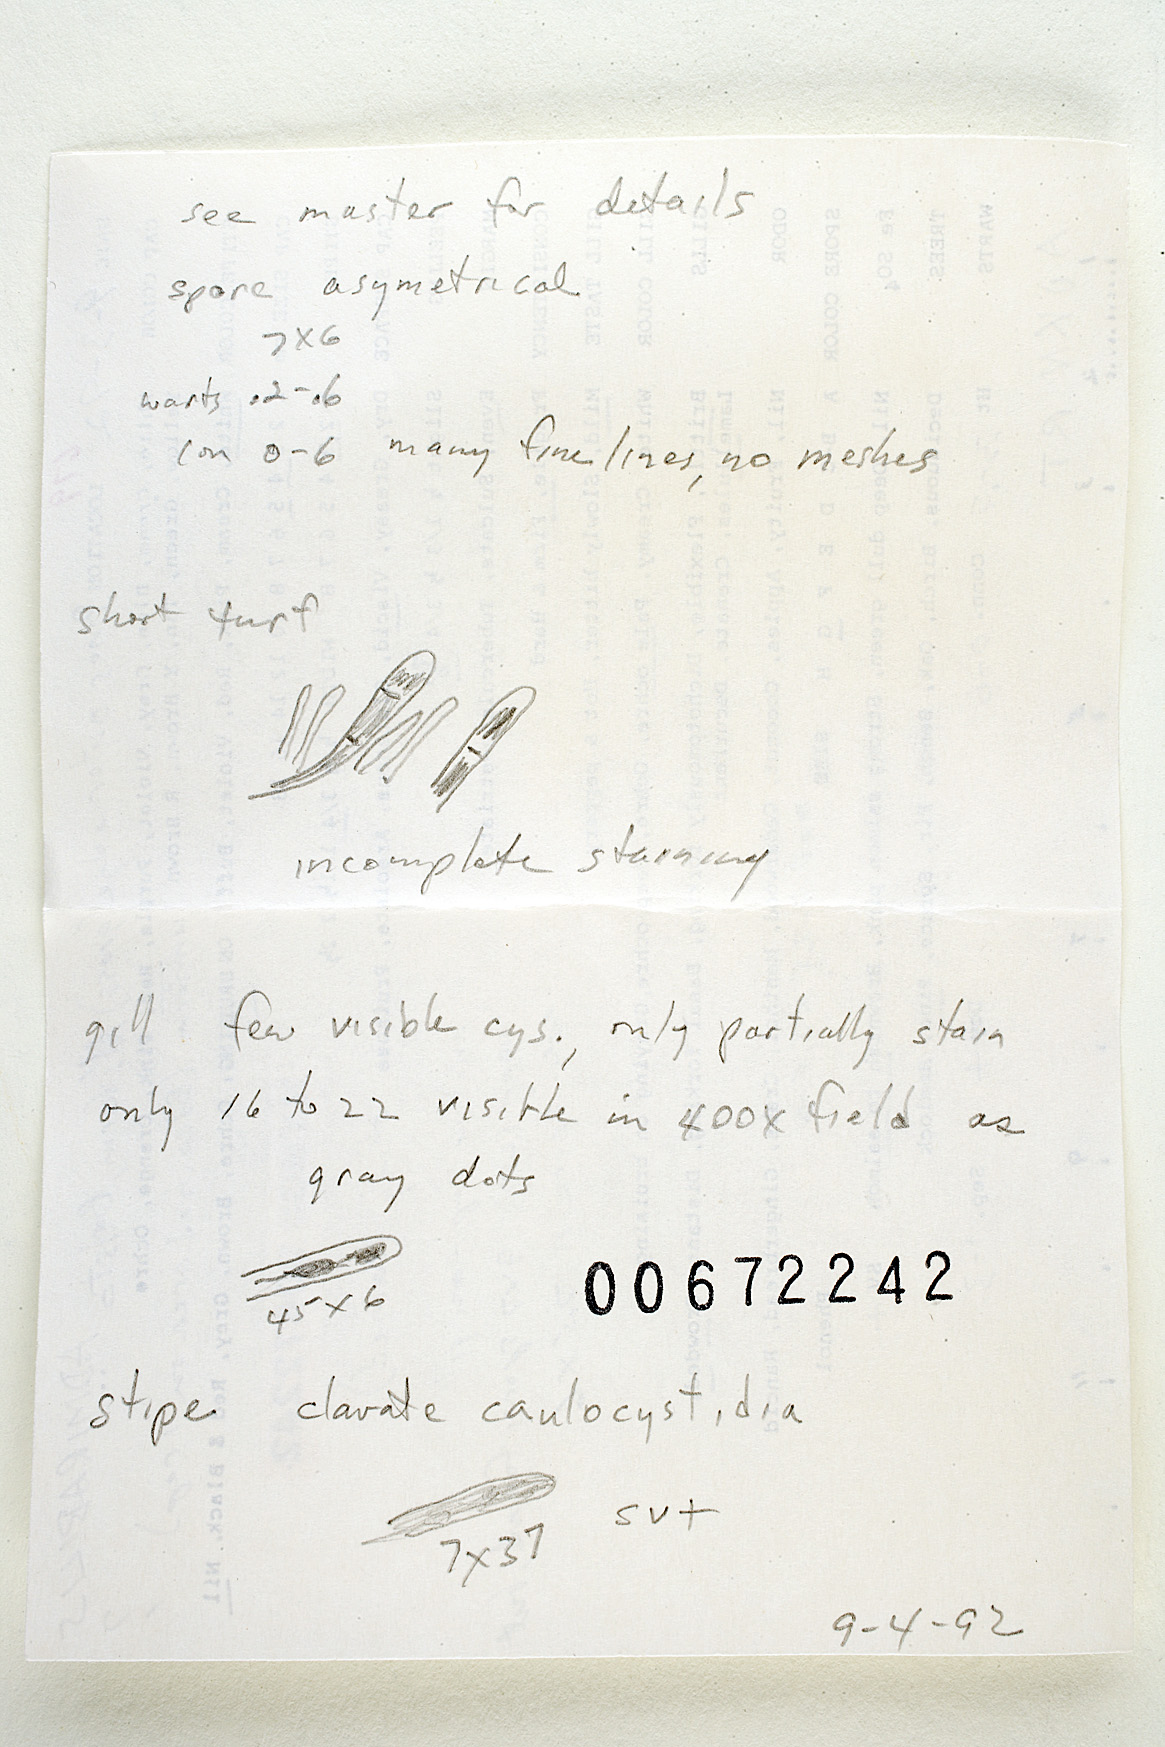 see master for details
spore asymetrical
7x6
warts .2-.6
con 0-6 many fine lines, no meshes
short turf
incomplete staining
gill few visible cys., only partially stain
only 16 to 22 visible in 400x field as
gray dots
45x6
00672242
stipe clavate caulocystidia
7x37 sv+
9-4-92